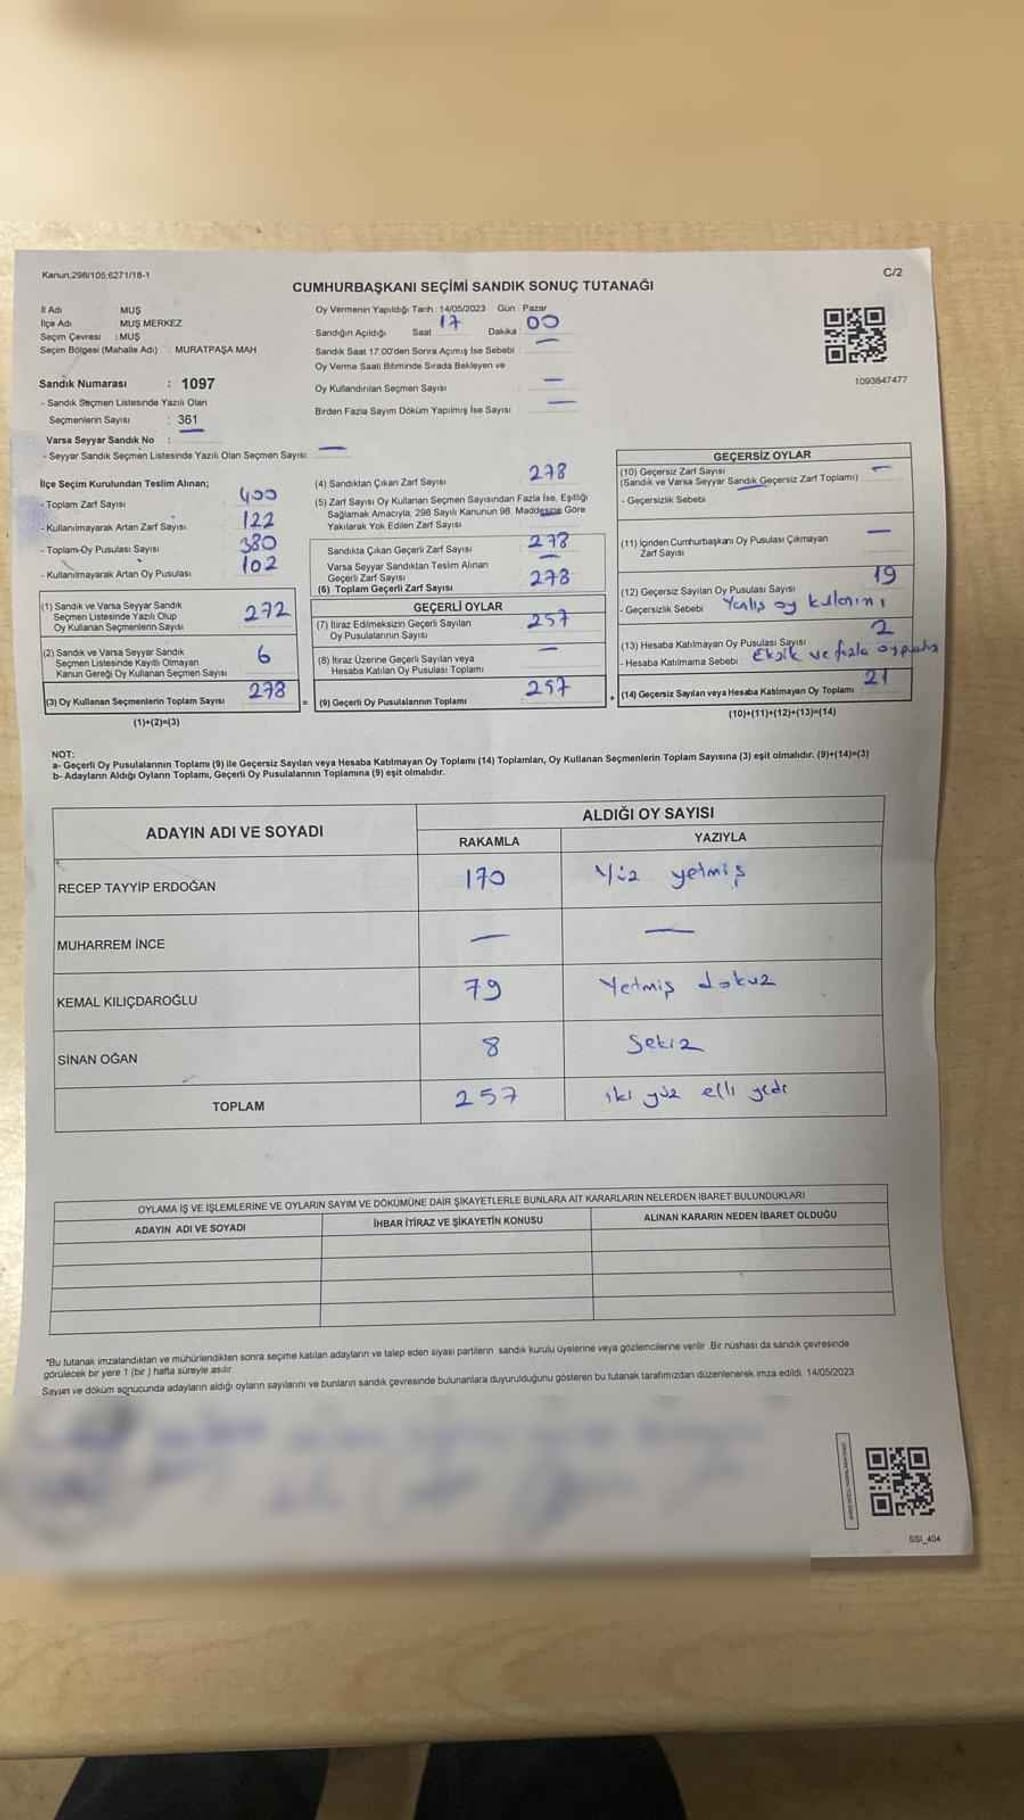 Kanun,298/105;6271/18-1
C/2
CUMHURBAŞKANI SEÇİMİ SANDIK SONUÇ TUTANAĞI
İl Adı MUŞ
İlçe Adı MUŞ MERKEZ
Seçim Çevresi : MUŞ
Seçim Bölgesi (Mahalle Adı) MURATPAŞA MAH
Sandık Numarası : 1097
- Sandık Seçmen Listesinde Yazılı Olan
Seçmenlerin Sayısı : 361
Varsa Seyyar Sandık No :
- Seyyar Sandık Seçmen Listesinde Yazılı Olan Seçmen Sayısı —
Oy Vermenin Yapıldığı Tarih : 14/05/2023 Gün : Pazar
Sandığın Açıldığı Saat 17 Dakika 00
Sandık Saat 17.00'den Sonra Açımış İse Sebebi —
Oy Verme Saati Bitiminde Sırada Bekleyen ve
Oy Kullandırılan Seçmen Sayısı —
Birden Fazla Sayım Döküm Yapılmış İse Sayısı —
1093647477
İlçe Seçim Kurulundan Teslim Alınan;
- Toplam Zarf Sayısı 400
- Kullanılmayarak Artan Zarf Sayısı 122
- Toplam Oy Pusulası Sayısı 380
- Kullanılmayarak Artan Oy Pusulası 102
(1) Sandık ve Varsa Seyyar Sandık
Seçmen Listesinde Yazılı Olup
Oy Kullanan Seçmenlerin Sayısı 272
(2) Sandık ve Varsa Seyyar Sandık
Seçmen Listesinde Kayıtlı Olmayan
Kanun Gereği Oy Kullanan Seçmen Sayısı 6
(3) Oy Kullanan Seçmenlerin Toplam Sayısı 278
(1)+(2)=(3)
(4) Sandıktan Çıkan Zarf Sayısı 278
(5) Zarf Sayısı Oy Kullanan Seçmen Sayısından Fazla İse, Eşitliği
Sağlamak Amacıyla, 298 Sayılı Kanunun 98. Maddesine Göre
Yakılarak Yok Edilen Zarf Sayısı —
Sandıkta Çıkan Geçerli Zarf Sayısı 278
Varsa Seyyar Sandıktan Teslim Alınan
Geçerli Zarf Sayısı —
(6) Toplam Geçerli Zarf Sayısı 278
GEÇERLİ OYLAR
(7) İtiraz Edilmeksizin Geçerli Sayılan
Oy Pusulalarının Sayısı 257
(8) İtiraz Üzerine Geçerli Sayılan veya
Hesaba Katılan Oy Pusulası Toplamı —
= (9) Geçerli Oy Pusulalarının Toplamı 257
GEÇERSİZ OYLAR
(10) Geçersiz Zarf Sayısı —
(Sandık ve Varsa Seyyar Sandık Geçersiz Zarf Toplamı)
- Geçersizlik Sebebi —
(11) İçinden Cumhurbaşkanı Oy Pusulası Çıkmayan —
Zarf Sayısı
(12) Geçersiz Sayılan Oy Pusulası Sayısı 19
- Geçersizlik Sebebi Yanlış oy kullanımı
(13) Hesaba Katılmayan Oy Pusulası Sayısı 2
- Hesaba Katılmama Sebebi Eksik ve fazla oy
+ (14) Geçersiz Sayılan veya Hesaba Katılmayan Oy Toplamı 21
(10)+(11)+(12)+(13)=(14)
NOT:
a- Geçerli Oy Pusulalarının Toplamı (9) ile Geçersiz Sayılan veya Hesaba Katılmayan Oy Toplamı (14) Toplamları, Oy Kullanan Seçmenlerin Toplam Sayısına (3) eşit olmalıdır. (9)+(14)=(3)
b- Adayların Aldığı Oyların Toplamı, Geçerli Oy Pusulalarının Toplamına (9) eşit olmalıdır.
ADAYIN ADI VE SOYADI ALDIĞI OY SAYISI
RAKAMLA YAZIYLA
RECEP TAYYİP ERDOĞAN 170 Yüz yetmiş
MUHARREM İNCE — —
KEMAL KILIÇDAROĞLU 79 Yetmiş dokuz
SİNAN OĞAN 8 Sekiz
TOPLAM 257 iki yüz elli yedi
OYLAMA İŞ VE İŞLEMLERİNE VE OYLARIN SAYIM VE DÖKÜMÜNE DAİR ŞİKAYETLERLE BUNLARA AİT KARARLARIN NELERDEN İBARET BULUNDUKLARI
ADAYIN ADI VE SOYADI İHBAR İTİRAZ VE ŞİKAYETİN KONUSU ALINAN KARARIN NEDEN İBARET OLDUĞU
*Bu tutanak imzalandıktan ve mühürlendikten sonra seçime katılan adayların ve talep eden siyasi partilerin sandık kurulu üyelerine veya gözlemcilerine verilir. Bir nüshası da sandık çevresinde
görülecek bir yere 1 (bir) hafta süreyle asılır.
Sayım ve döküm sonucunda adayların aldığı oyların sayılarını ve bunların sandık çevresinde bulunanlara duyurulduğunu gösteren bu tutanak tarafımızdan düzenlenerek imza edildi. 14/05/2023
SSI_404